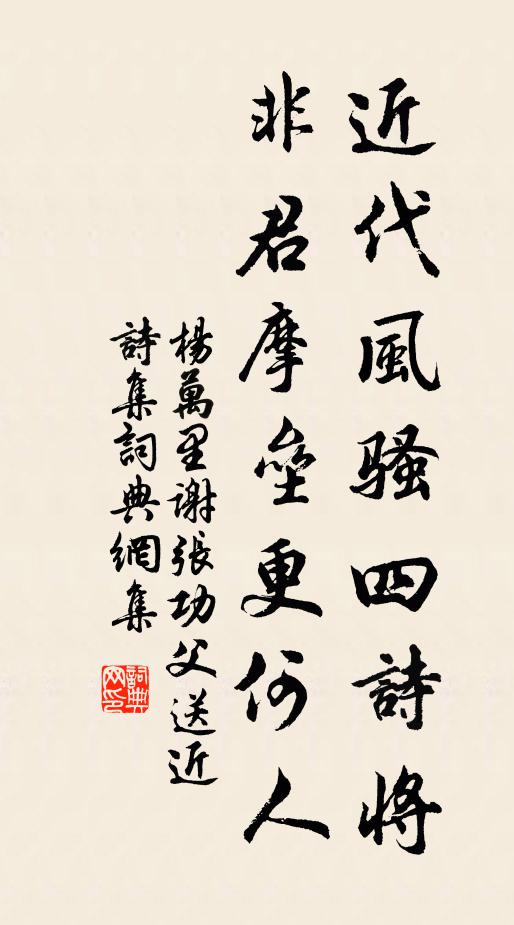 近代風騷四詩將
非君摩壘更何人
楊萬里謝張功父送近
詩集詞典網集
詞典網印